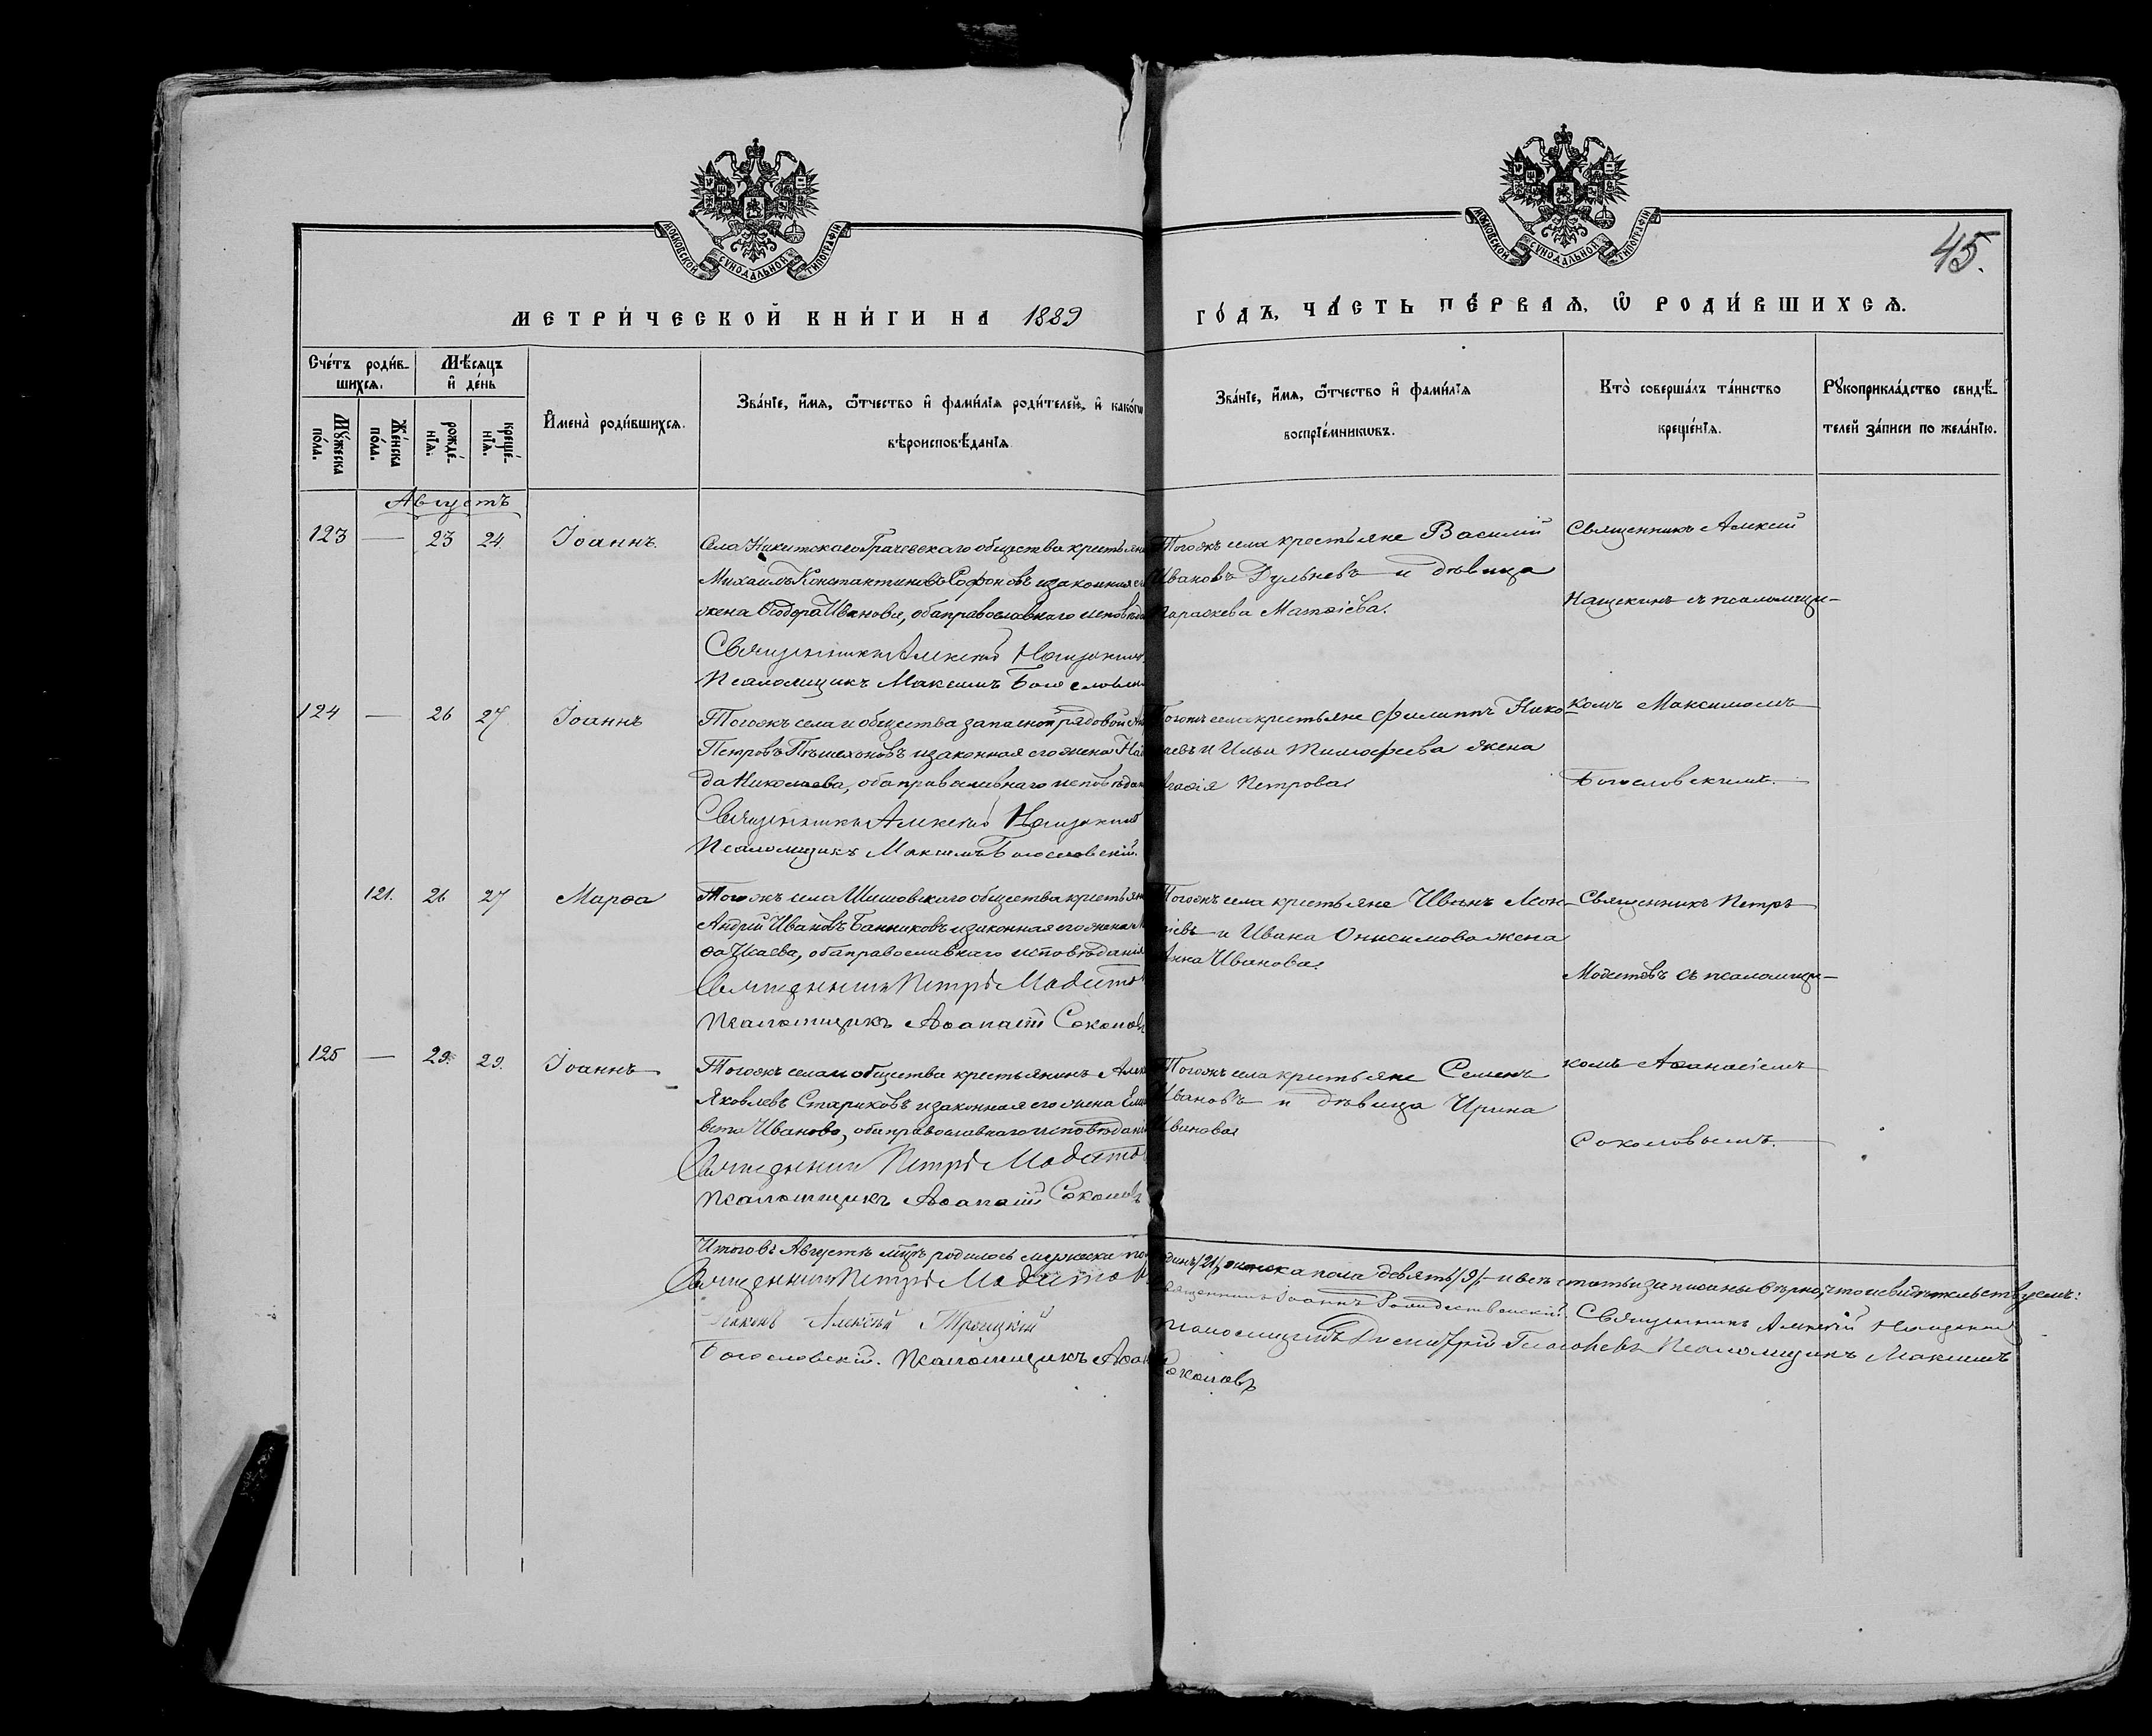 МОСКОВСКОЙ СУНОДАЛЬНОЙ ТИПОГРАФІИ
МОСКОВСКОЙ СУНОДАЛЬНОЙ ТИПОГРАФІИ
45.
МЕТРИ́ЧЕСКОЙ КНИ́ГИ НА 1889
ГО́ДЪ, ЧА́СТЬ ПЕ́РВАѦ, Ѡ РОДИ́ВШИХСѦ.
Сче́тъ роди́в-
шихсѧ.
Мѣ́сѧцъ
и҆ де́нь
Мꙋ́жеска
по́ла.
Же́нска
по́ла.
рожде́-
нїѧ.
креще́-
нїѧ.
И҆мена̀ роди́вшихсѧ.
Зва́нїе, и҆́мѧ, ѻ҆́тчество и҆ фами́лїѧ роди́телей, и҆ како́гѡ
вѣроисповѣ́данїѧ
Зва́нїе, и҆́мѧ, ѻ҆́тчество и҆ фами́лїѧ
воспрїе́мникѡвъ.
Кто̀ соверша́лъ та́инство
креще́нїѧ.
Рꙋкоприкла́дство свидѣ́-
телей за́писи по жела́нїю.
Августъ
123 — 23 24. Іоаннъ.
Села Никитскаго Грачевскаго общества крестьяни
Михаилъ Константиновъ Софоновъ и законная ег
жена Ѳеодора Иванова, оба православнаго исповѣда
Священникъ Алексій Нащокинъ
Псаломщикъ Максимъ Богословск
Тогожъ села крестьяне Василій
Ивановъ Дульневъ и дѣвица
Параскева Матѳіева.
Священникъ Алексій
Нащекинъ съ псаломщи-
124 — 26 27. Іоаннъ
Тогожъ села и общества запасной рядовой
Петровъ Пѣшехоновъ и законная его жена На
да Николаева, оба православнаго исповѣдан
Священникъ Алексій Нащокинъ
Псаломщикъ Максимъ Богословскій.
Тогожъ села крестьяне Филиппъ Нико-
лаевъ и Ильи Тимофеева жена
Агаѳія Петрова
комъ Максимомъ
Богословскимъ.
121. 26 27 Марѳа
Тогожъ села Шишовскаго общества крестьян
Андрей Ивановъ Банниковъ и законная его жена М
ѳа Исаева, оба православнаго исповѣданія
Священникъ Петръ Модестов
Псаломщикъ Аѳанасій Соколов
Тогожъ села крестьяне Иванъ
и Ивана Онисимова жена
Анна Иванова.
Священникъ Петръ
Модестовъ съ псаломщи-
125 — 29. 29. Іоаннъ
Тогожъ села и общества крестьянинъ Алек
Яковлевъ Стариковъ и законная его жена Елиса
вета Иванова, оба православнаго исповѣдані
Священникъ Петръ Модестов
Псаломщикъ Аѳанасій Соколовъ
Тогожъ села крестьяне Семенъ
Ивановъ и дѣвица Ирина
Иванова
комъ Аѳанасіемъ
Соколовымъ.
Итого въ Августѣ мѣсяцѣ родилось мужеска по динъ /21/, женска пола девять /9/ — и всѣ статьи записаны вѣрно, что и свидѣтельствуемъ:
Священникъ Петръ Модестовъ Священникъ Іоаннъ Рождественскій. Священникъ Алексій Нащокинъ
Діаконъ Алексѣй Троицкій Псаломщикъ Димитрій Псаломщикъ Максимъ
Богословскій. Псаломщикъ Аѳан Соколовъ